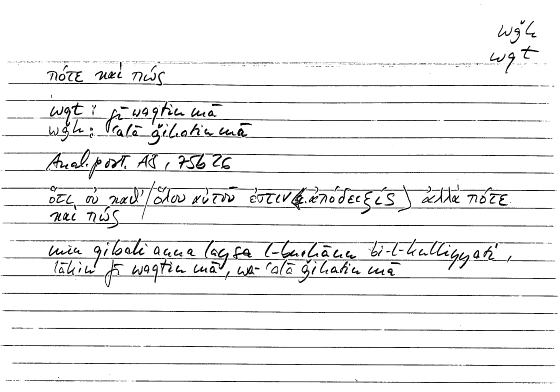 wǧh
wqt
πότε καὶ πῶς
wqt : fī waqtin mā
wǧh : ʿalā ǧihatin mā
Anal. post. A8, 75b26
ὅτι οὐ καθ' (ὅλου αὐτοῦ ἐστιν (ἡ ἀπόδειξις) ἀλλὰ πότε
καὶ πῶς
min qibali anna laysa l-burhānu bi-l-kulliyyati,
lākin fī waqtin mā, wa-ʿalā ǧihatin mā